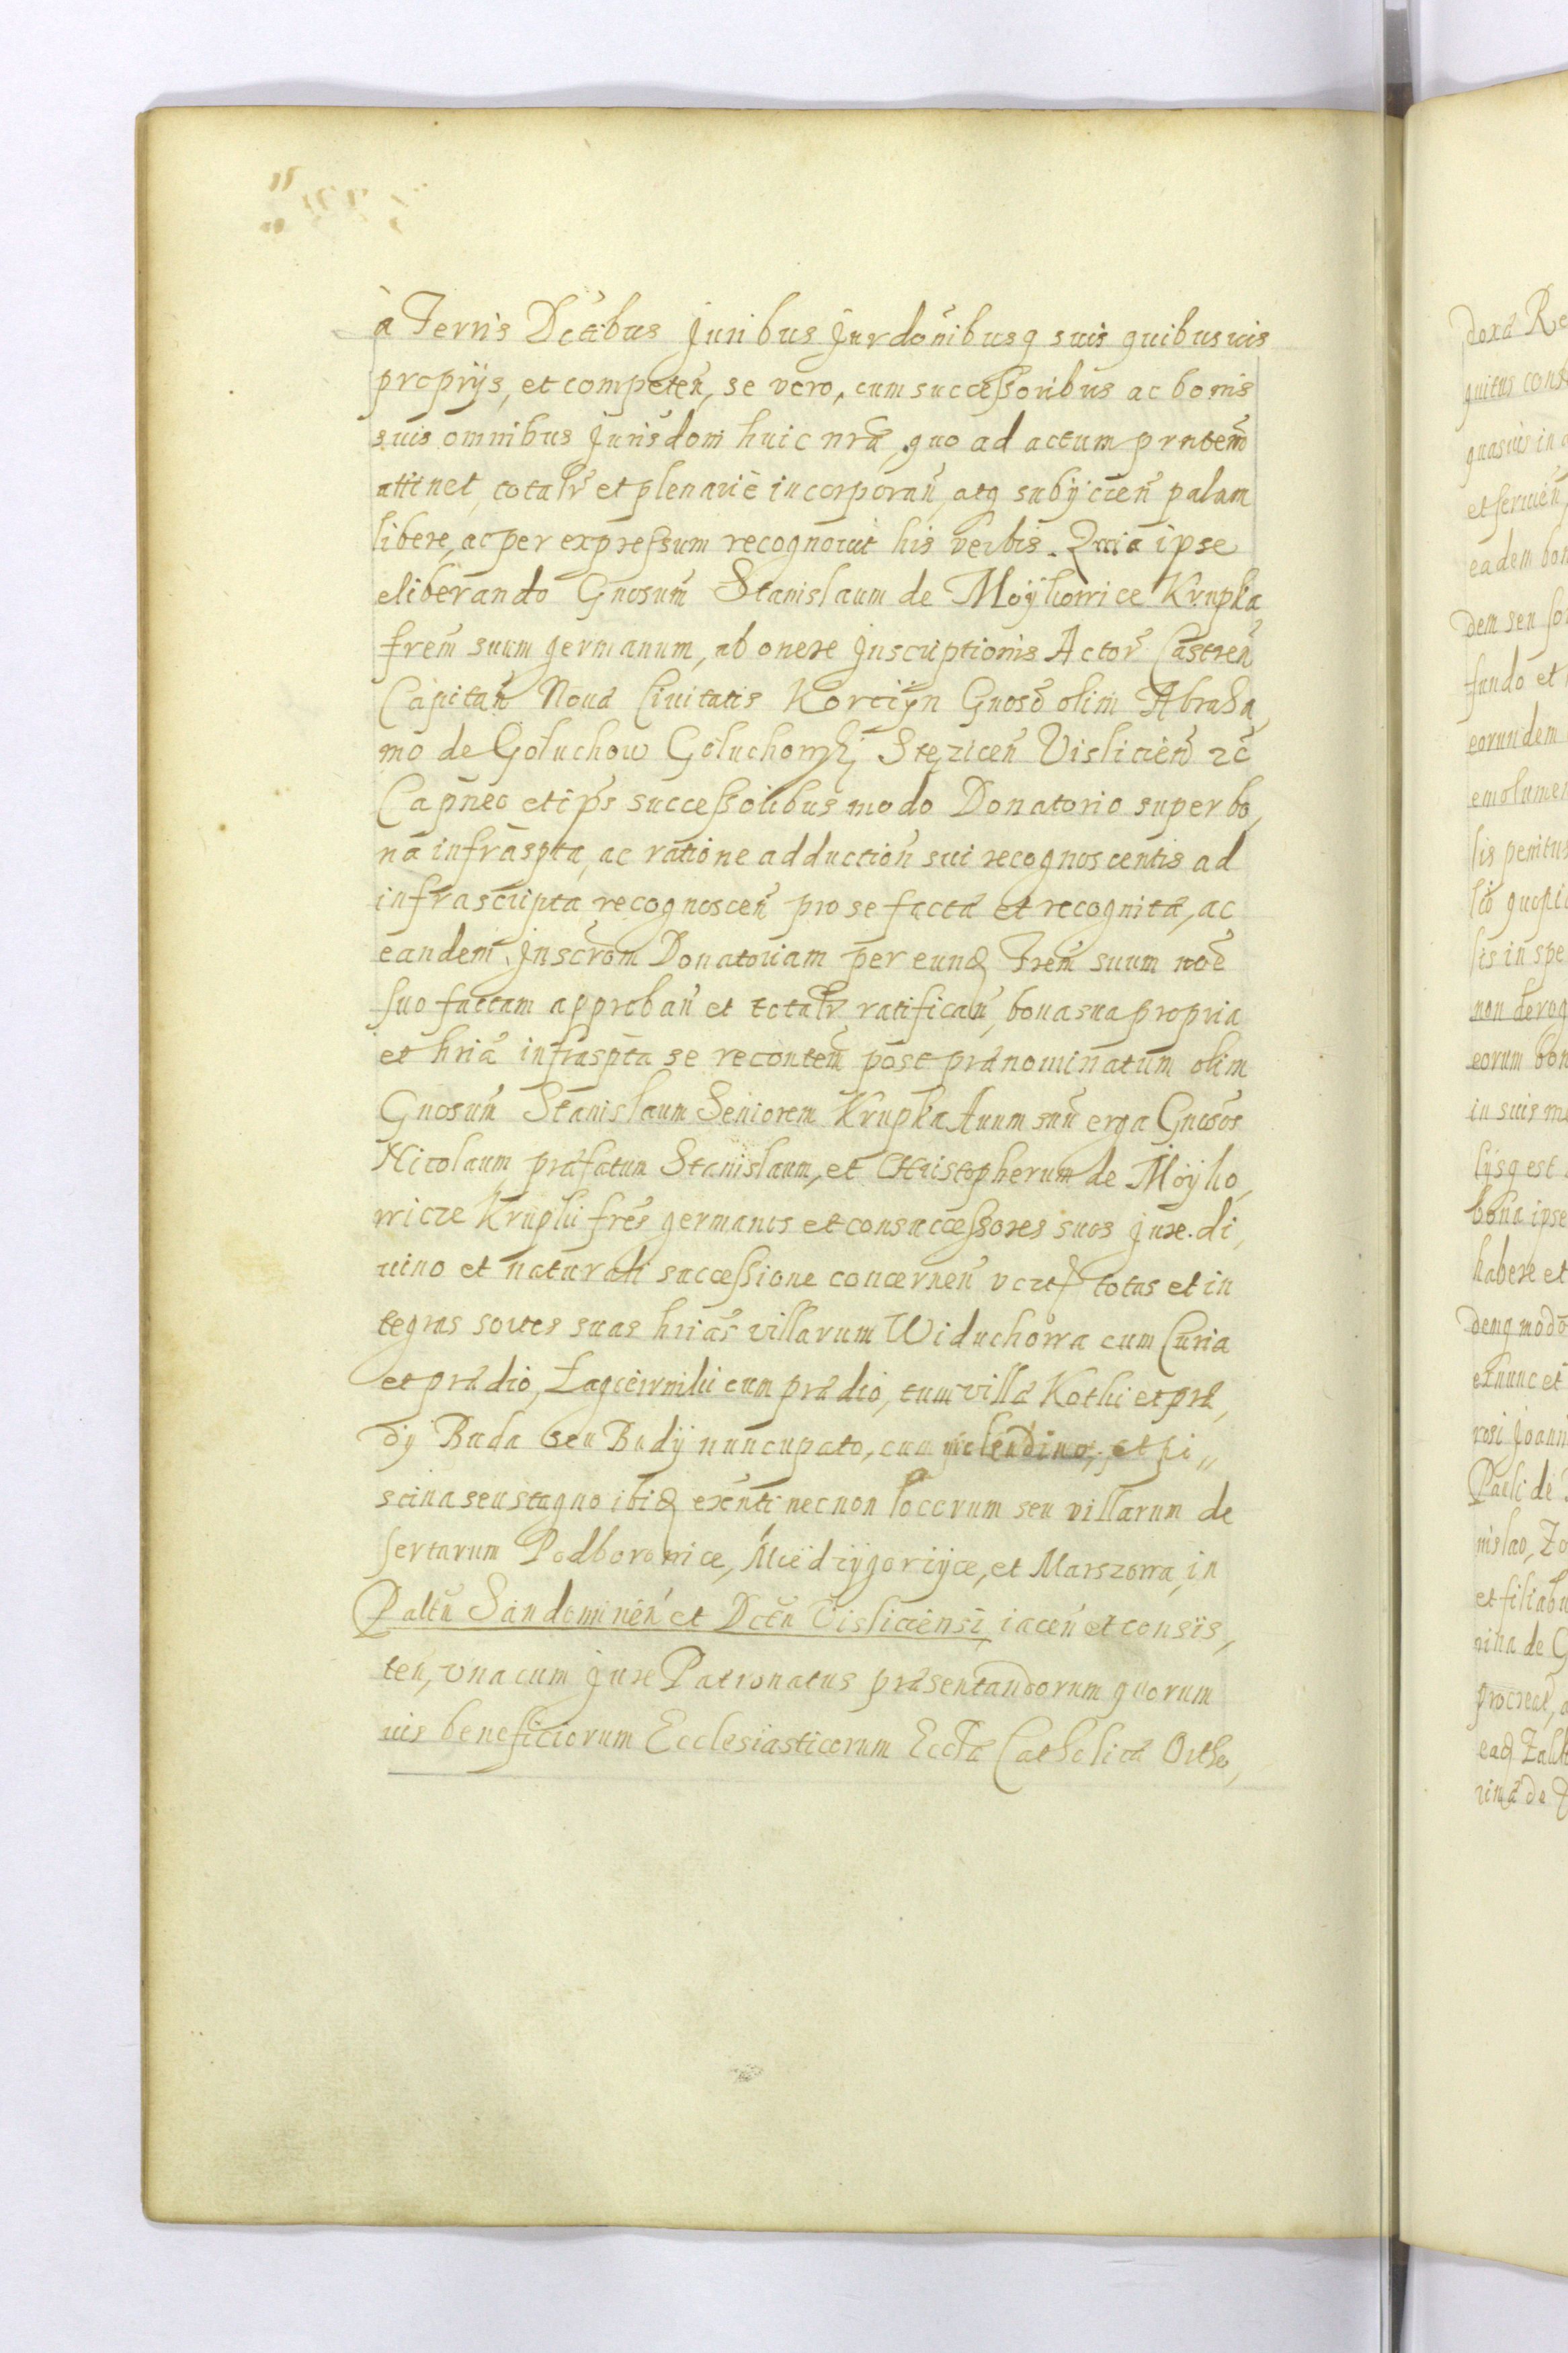 à Terris Dctibus Juribus Jurdonibusq suis quibusuis
proprijs, et competen, se vero, cum successoribus ac bonis
suis omnibus Jurisdoni huic nrae, quo ad actum prntem
attinet, totalr et plenariè incorporan, atq subijcien palam
libere, ac per expressum recognouit his verbis. Quia ipse
eliberando Gnosum Stanislaum de Moÿkowice Krupka,
frem suum germanum, ab onere Inscriptionis Actor Castren
Capitan Nouae Ciuitatis Korcÿn Gnoso olim Abraha,
mo de Goluchow Goluchowskj Stęzicen Vislicien 2c
Capneo et ips successoribus modo Donatorio super bo,
na infraspta, ac ratione adduction sui recognoscentis ad
infrascripta recognoscen pro se factae et recognitae, ac
eandem Inscrom Donatoriam per eund frem suum noe
suo factam approban et totalr ratifican, bona sua propria
et hria infraspta se recontem post praenominatum olim
Gnosum Stanislaum Seniorem Krupka Auum suu erga Gnosos
Nicolaum, praefatum Stanislaum, et Christopherum de Moÿko,
wicze Krupki fres germanos et consuccessores suos Jure di,
uino et naturali successione concernen vcz totas et in
tegras sortes suas hrias villarum Widuchowa cum Curia
et praedio, Łagciewniki cum praedio, tum villae Kotki et prae,
dÿ Buda seu Budÿ nuncupato, cum molendino, et pi„
scina seu stagno ibid exnti necnon locorum seu villarum de
sertarum Podborowice, Miedzÿgorzÿce, et Marszowa, in
Paltu Sandomirien et Dctu Visliciensi iacen et consis,
ten, vna cum Jure Patronatus praesentandorum quorum
uis beneficiorum Ecclesiasticorum Eccliae Catholicae Ortho,